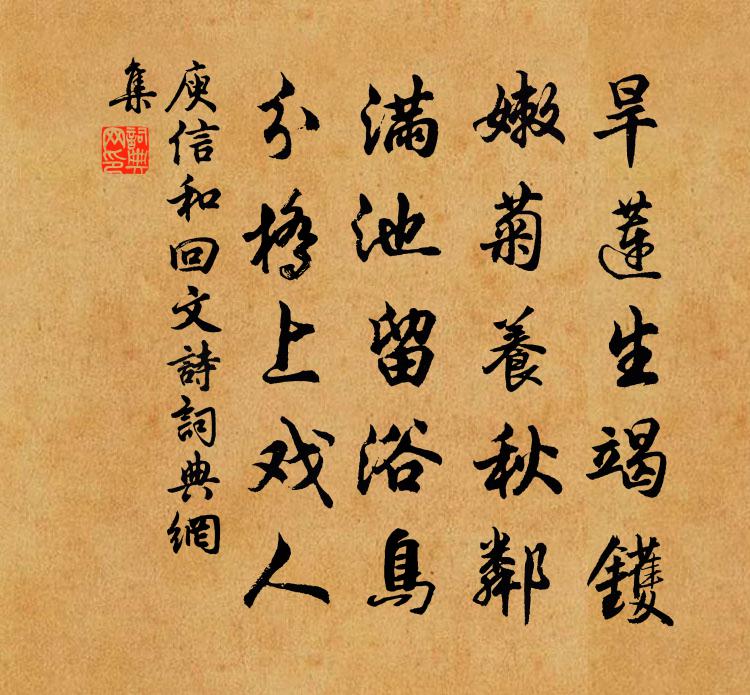 旱蓮生竭鑊
嫩菊養秋鄰
滿池留浴鳥
分橋上戏人
庾信和回文詩詞典網
集
詞典
网印